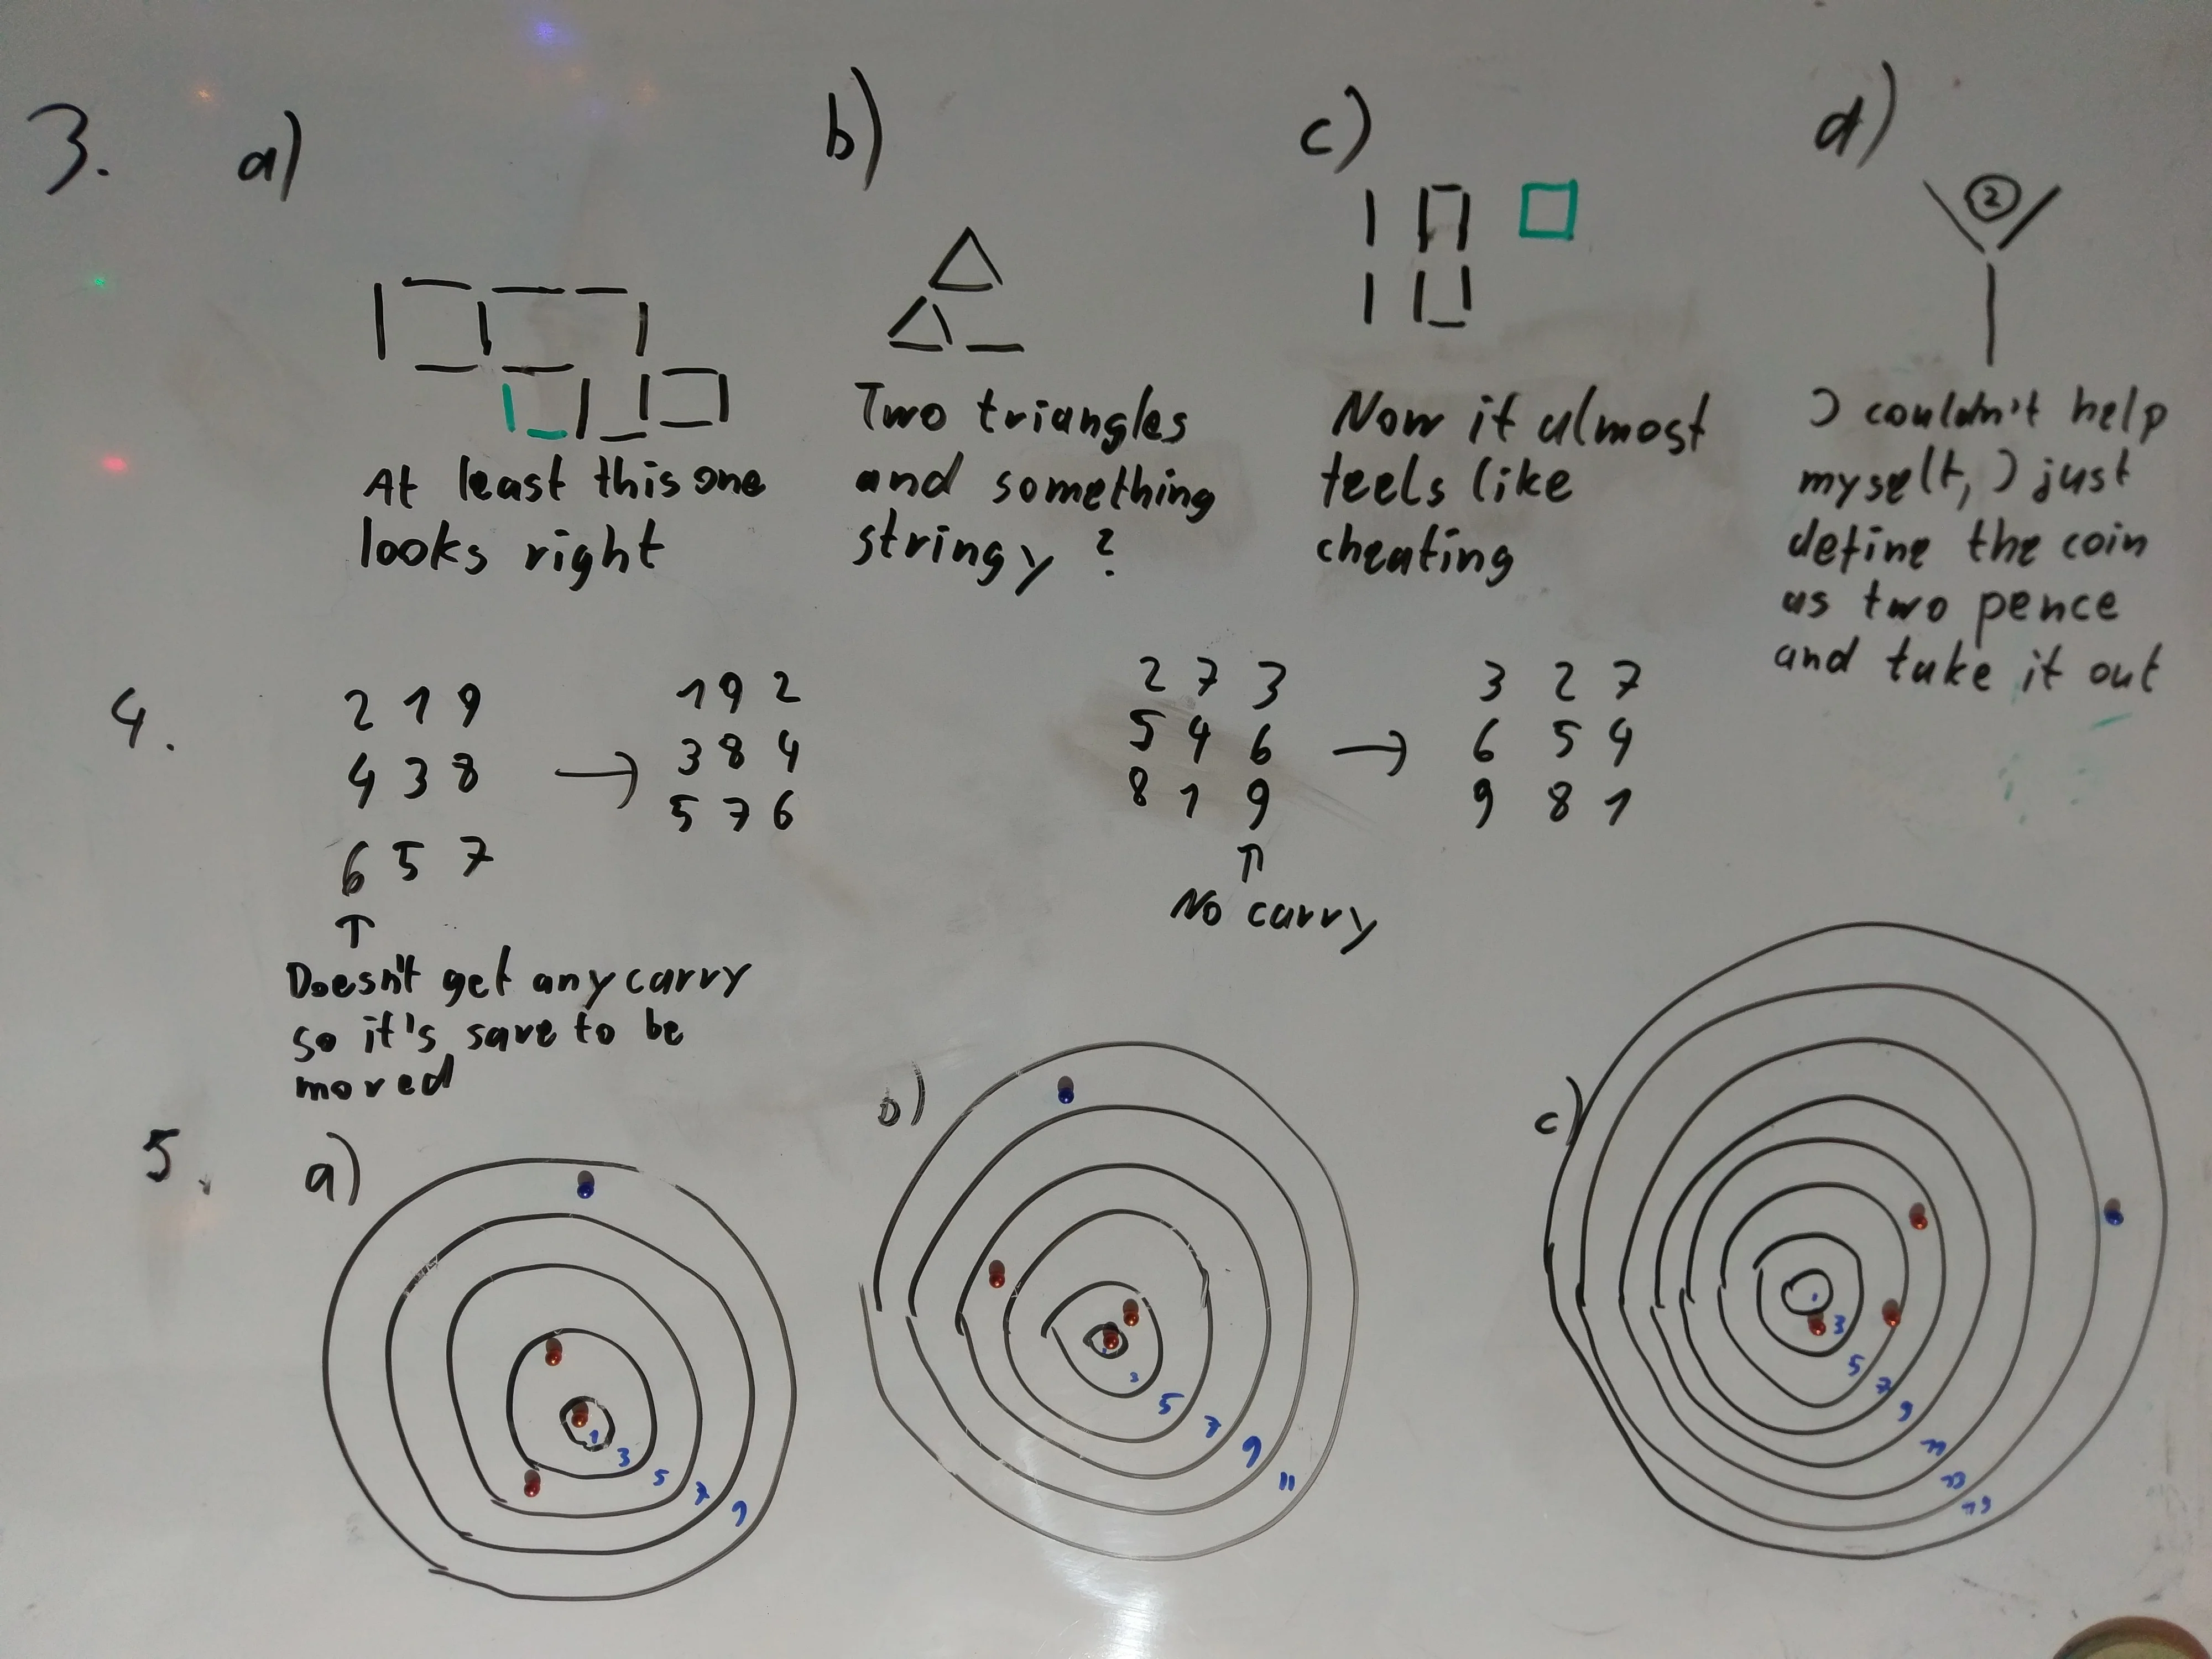 3. a) b) c) d)
2
At least this one
looks right
Two triangles
and something
stringy ?
Now it almost
feels like
cheating
I couldn't help
myself, I just
define the coin
as two pence
and take it out
4.
2 1 9
4 3 8
6 5 7
↑
Doesn't get any carry
so it's save to be
moved
→
1 9 2
3 8 4
5 7 6
2 7 3
5 4 6
8 1 9
↑
No carry
→
3 2 7
6 5 4
9 8 1
5.
a)
1
3
5
7
9
b)
3
5
7
9
11
c)
3
5
7
9
11